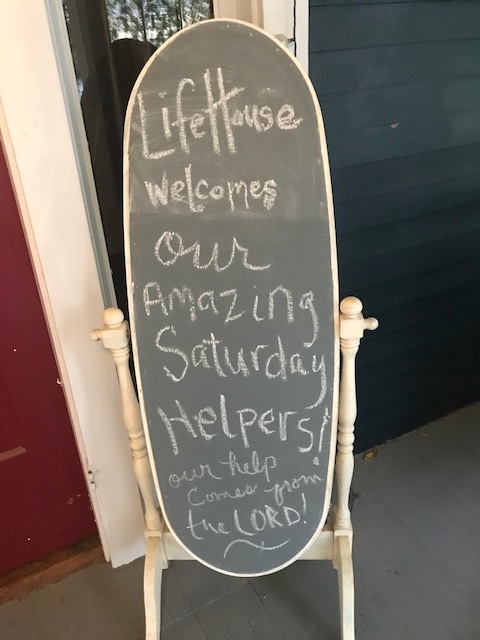 LifeHouse
Welcomes
our
Amazing
Saturday
Helpers!
our help
comes from
the LORD!